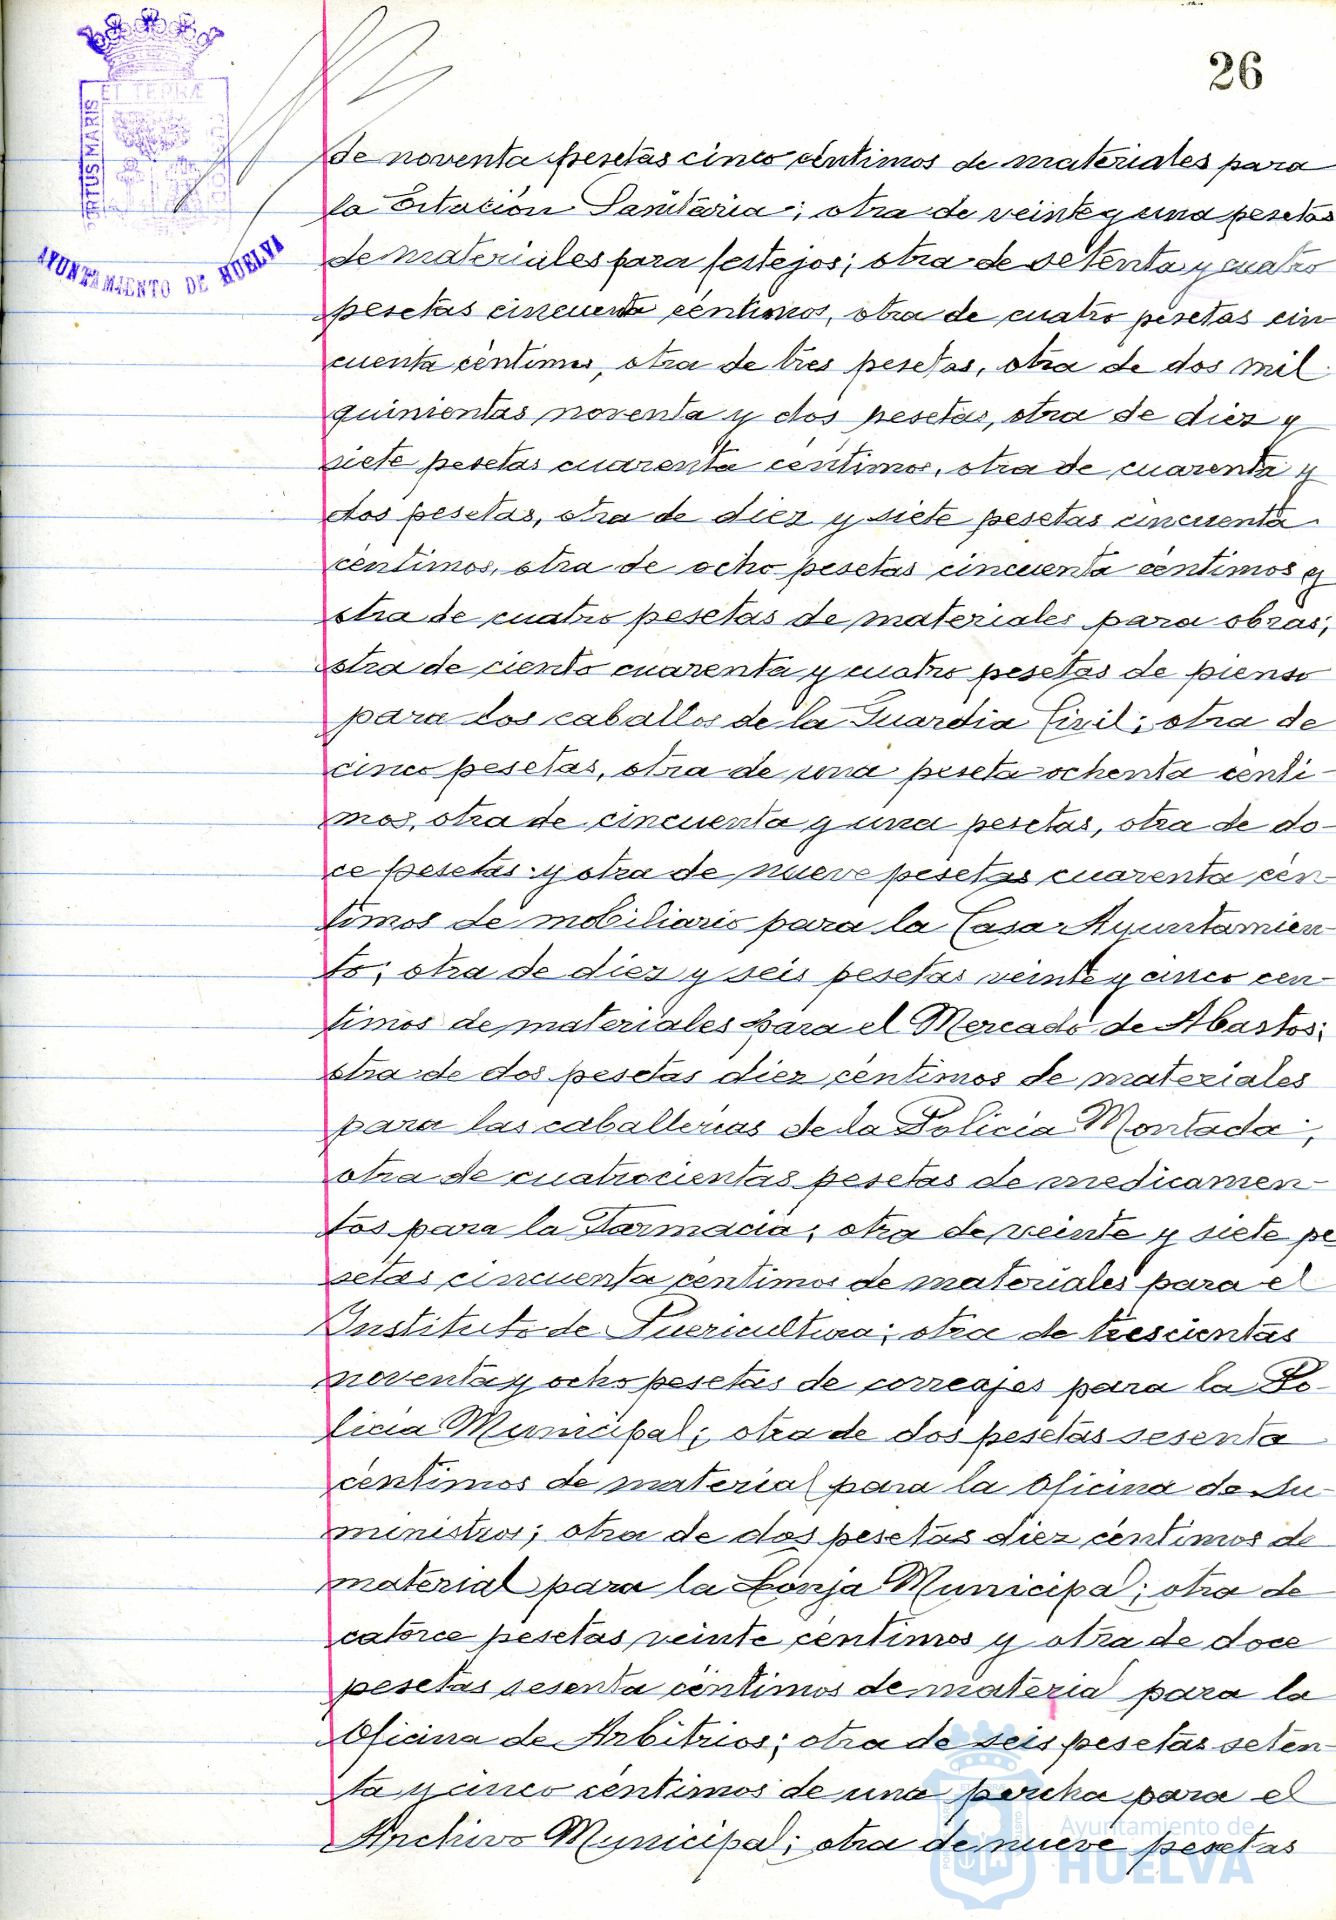 26
ET TERRÆ
PORTUS MARIS
AYUNTAMIENTO DE HUELVA
de noventa pesetas cinco céntimos de materiales para
la Estación Sanitaria; otra de veinte y una pesetas
de materiales para festejos; otra de setenta y cuatro
pesetas cincuenta céntimos, otra de cuatro pesetas cin-
cuenta céntimos, otra de tres pesetas, otra de dos mil
quinientas noventa y dos pesetas, otra de diez y
siete pesetas cuarenta céntimos, otra de cuarenta y
dos pesetas, otra de diez y siete pesetas cincuenta
céntimos, otra de ocho pesetas cincuenta céntimos y
otra de cuatro pesetas de materiales para obras;
otra de ciento cuarenta y cuatro pesetas de pienso
para los caballos de la Guardia Civil; otra de
cinco pesetas, otra de una peseta ochenta cénti-
mos, otra de cincuenta y una pesetas, otra de do-
ce pesetas y otra de nueve pesetas cuarenta cén-
timos de mobiliario para la Casa Ayuntamien-
to; otra de diez y seis pesetas veinte y cinco cén-
timos de materiales para el Mercado de Abastos;
otra de dos pesetas diez céntimos de materiales
para las caballerias de la Policía Montada;
otra de cuatrocientas pesetas de medicamen-
tos para la Farmacia; otra de veinte y siete pe
setas cincuenta céntimos de materiales para el
Instituto de Puericultura; otra de trescientas
noventa y ocho pesetas de correajes para la Po-
licia Municipal; otra de dos pesetas sesenta
céntimos de material para la Oficina de Su-
ministros; otra de dos pesetas diez céntimos de
material para la Lonja Municipal; otra de
catorce pesetas veinte céntimos y otra de doce
pesetas sesenta céntimos de material para la
Oficina de Arbitrios; otra de seis pesetas seten-
ta y cinco céntimos de una percha para el
Archivo Municipal; otra de nueve pesetas
Ayuntamiento de
HUELVA